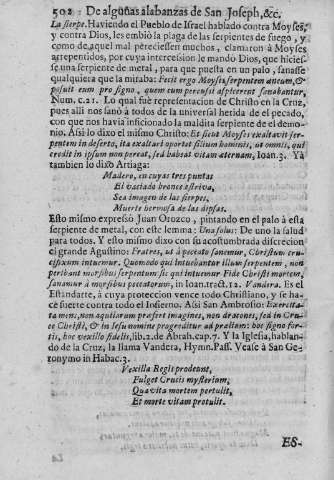 502 De algunas alabanzas de San Joseph, &c.
La sierpe. Haviendo el Pueblo de Israel hablado contra Moyses,
y contra Dios, les embiò la plaga de las serpientes de fuego, y
como de aquel mal pereciessen muchos, clamaron à Moyses
arrepentidos, por cuya intercesion le mandò Dios, que hicies-
se una serpiente de metal, y que puesta en un palo, sanasse
qualquiera que la miraba: Fecit ergo Moyses serpentem aneum, &
posuit eum pro signo, quem cum percussi aspicerent sanabantur,
Num. c.21. Lo qual fuè representacion de Christo en la Cruz,
pues alli nos sanò à todos de la universal herida del pecado,
con que nos havia inficionado la maldita serpiente del demo-
nio. Asi lo dixo el mismo Christo: Et sicut Moyses exaltavit ser-
pentem in deserto, ita exaltari oportet filium hominis, ut omnis, qui
credit in ipsum non pereat, sed habeat vitam aternam, Ioan.3. Ya
tambien lo dixo Artiaga:
Madero, en cuyas tres puntas
El vaciado bronce
Sea imagen de las sierpes,
Muerte hermosa de las dipsas.
Esto mismo expressò Juan Orozco, pintando en el palo à esta
serpiente de metal, con este lemma: Una salus: De uno la salud
para todos. Y esto mismo dixo con su acostumbrada discrecion
el grande Agustino: Fratres, ut à peccato sanemur, Christum cru-
cifixum intueamur. Quomodo qui intuebantur illum serpentem, non
peribant morsibus serpentum sic qui intuemur Fide Christi mortem,
sanamur à morsibus peccatorum, in Ioan.tract.12. Vandera. Es el
Estandarte, à cuya proteccion vence todo Christiano, y se ha-
ce fuerte contra todo el Infierno. Asi San Ambrosio: Exercita-
ta mens, non aquilarum praefert imagines, non dracones, sed in Cru-
ce Christi, & in Iesu nomine progreditur ad praelium: hoc signo for-
tis, hoc vexillo fidelis, lib.2.de Abrah.cap.7. Y la Iglesia, hablan-
do de la Cruz, la llama Vandera, Hymn.Pass. Vease à San Ge-
ronymo in Habac.3.
Vexilla Regis prodeunt,
Fulget Crucis mysterium,
Qua vita mortem pertulit,
Et morte vitam protulit.
ES-